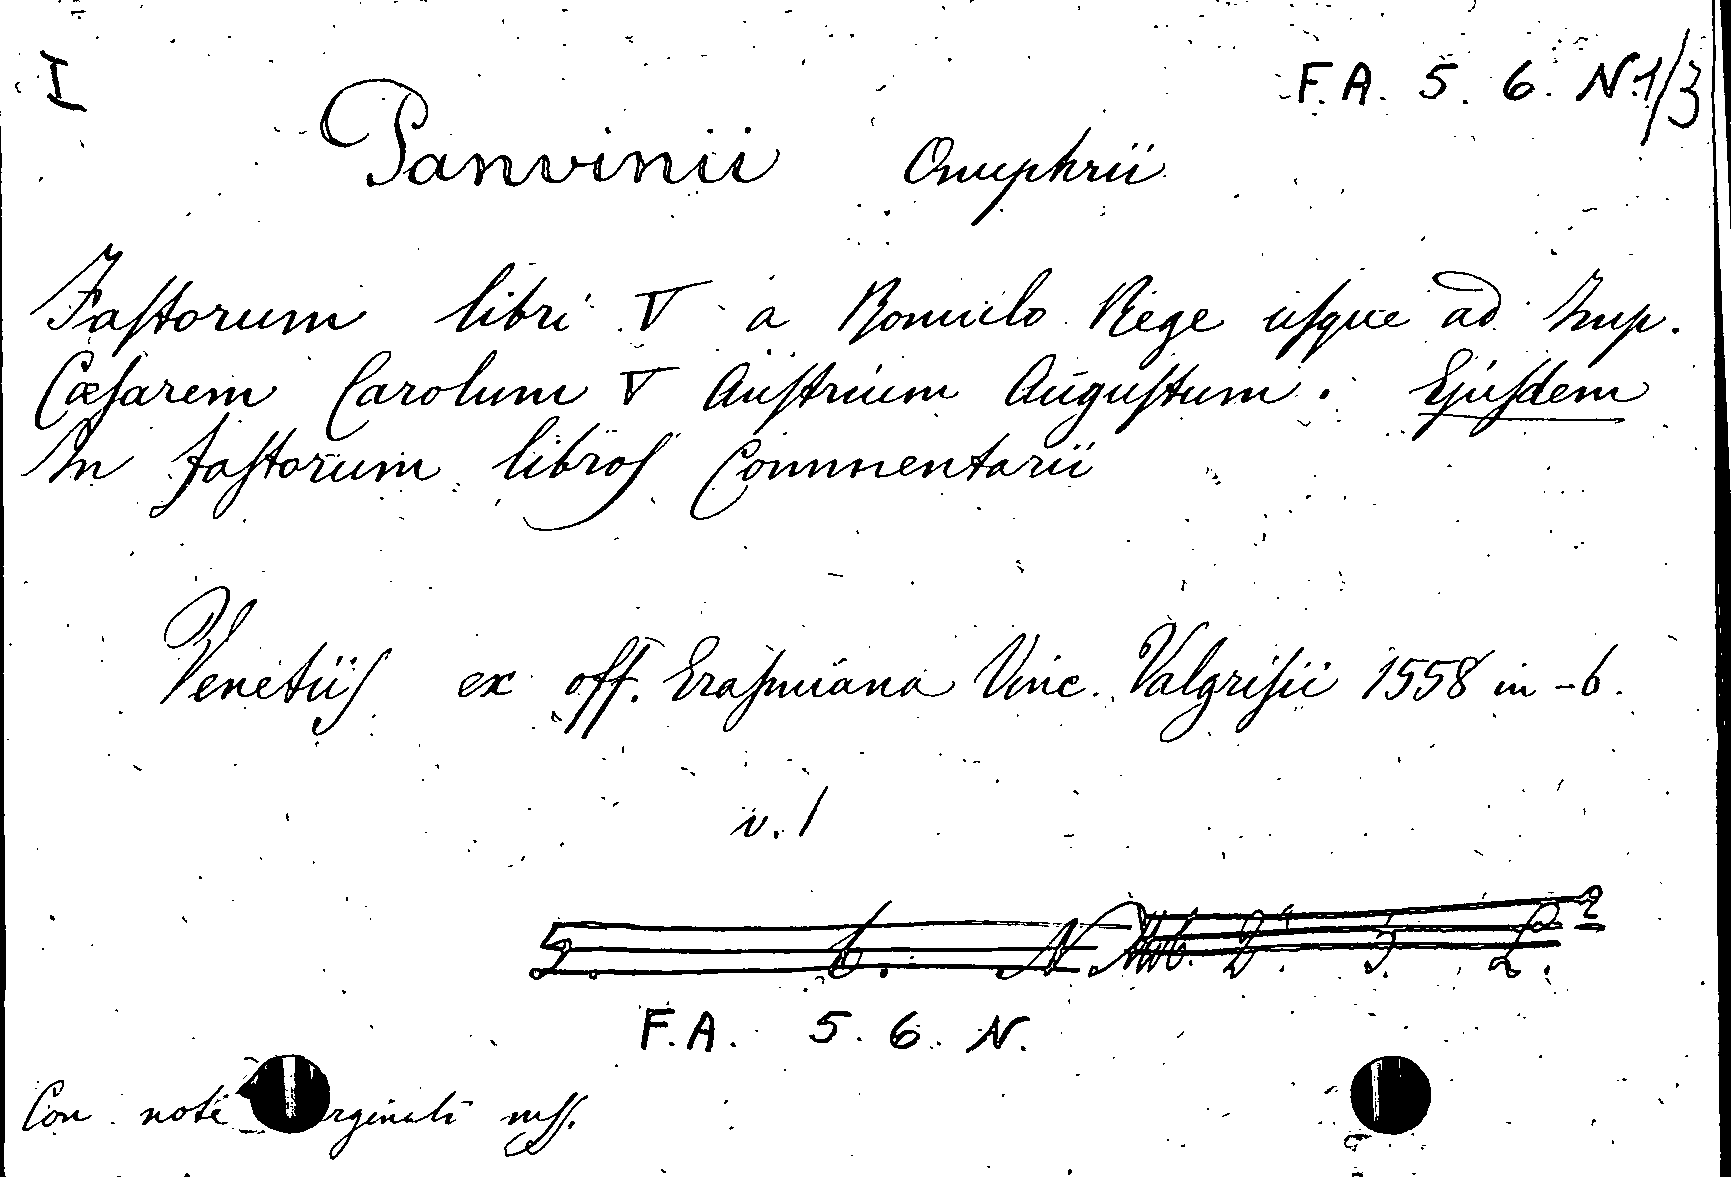 I
F. A. 5. 6. N. 1/3
Panvinii Onuphrii
Fastorum libri V a Romulo Rege usque ad Imp.
Cæsarem Carolum V Austrium Augustum. Ejusdem
In fastorum libros Commentarii
Venetiis ex off. Erasmiana Vinc. Valgrisii 1558 in -6.
v. 1
F. A. 5. 6. N.
Con note rginali mss.